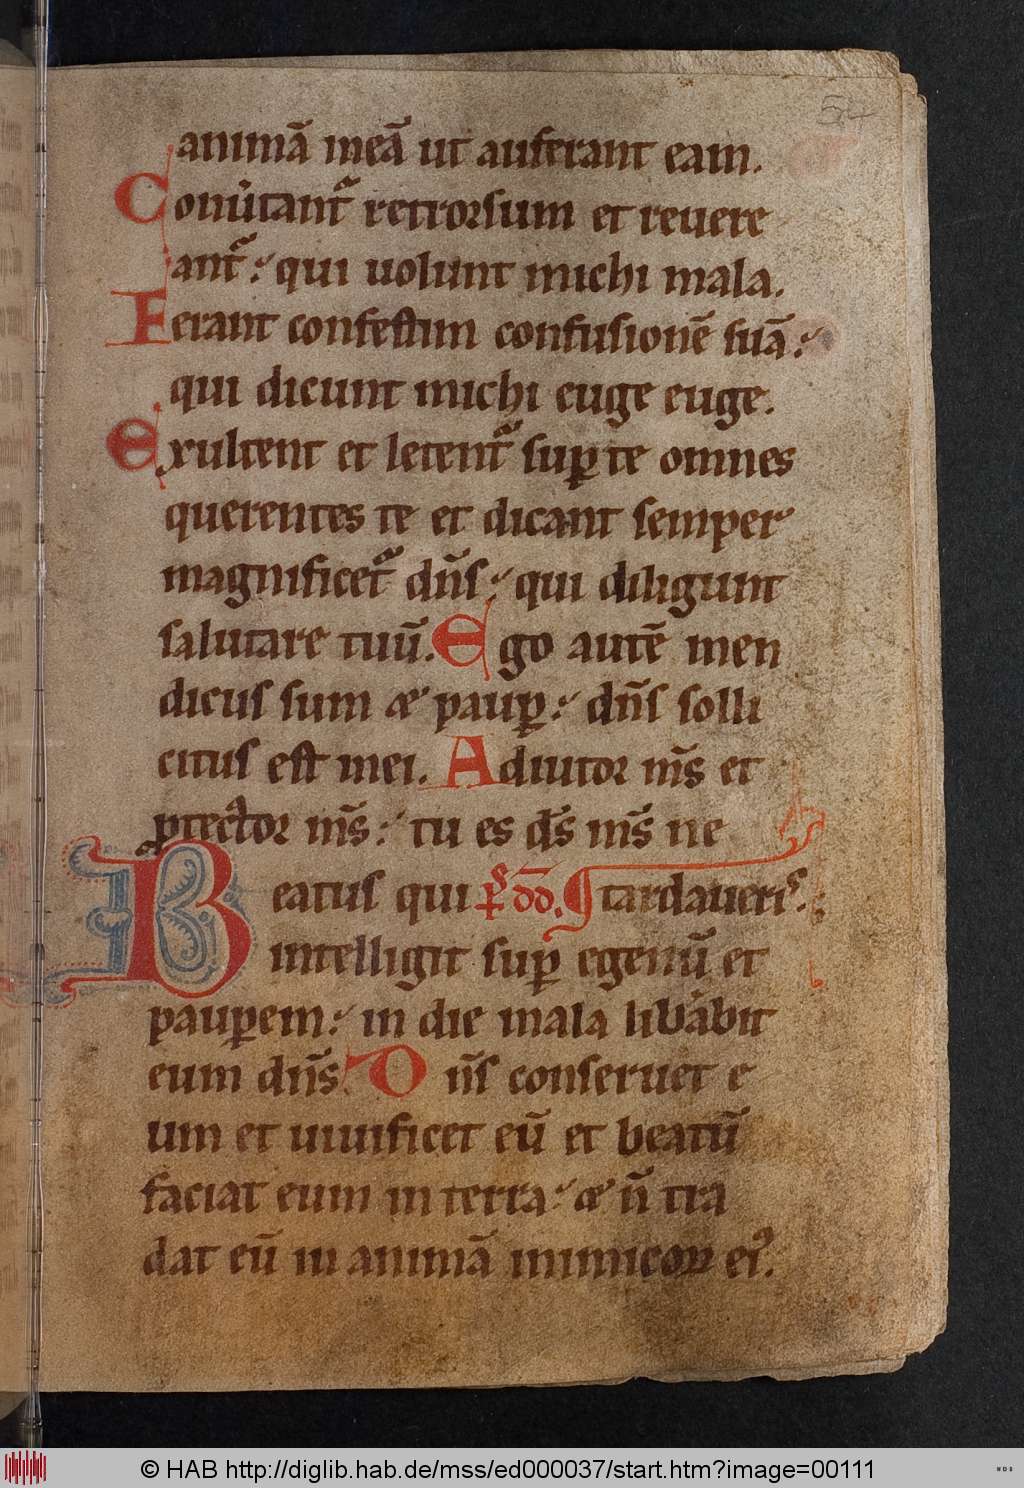 54
animā meā ut auferant eam.
Conu̾tant᷑ retrorsum et reuere
ant᷑: qui uolunt michi mala.
Ferant confestim confusionē suā:
qui dicunt michi euge euge.
Exultent et letent᷑ sup̱ te omnes
querentes te et dicant semper
magnificet᷑ dn̄s: qui diligunt
salutare tuū. Ego autē men
dicus sum æ paup̱: dn̄s solli
citus est mei. Adiutor m̄s et
ꝓtector m̄s: tu es d̄s m̄s ne
Beatus qui p̄s dd̄. ¶ tardaueris.
intelligit sup̱ egenū et
paup̱em: in die mala lib̾abit
eum dn̄s. Dn̄s conseruet e
um et uiuificet eū et beatū
faciat eum in terra: æ n̄ tra
dat eū in animā inimicoꝝ ei᾿.
© HAB http://diglib.hab.de/mss/ed000037/start.htm?image=00111